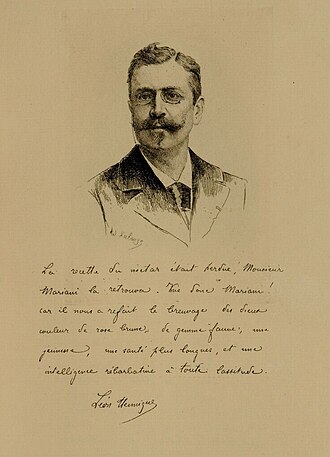 A. Lalauze
La recette du nectar était perdue, Monsieur
Mariani la retrouva. Vive donc Mariani!
car il nous a refait le breuvage des dieux
couleur de rose brune, de gemme fauve; une
jeunesse, une santé plus longues, et une
intelligence rébarbative à toute lassitude.
Léon Hennique